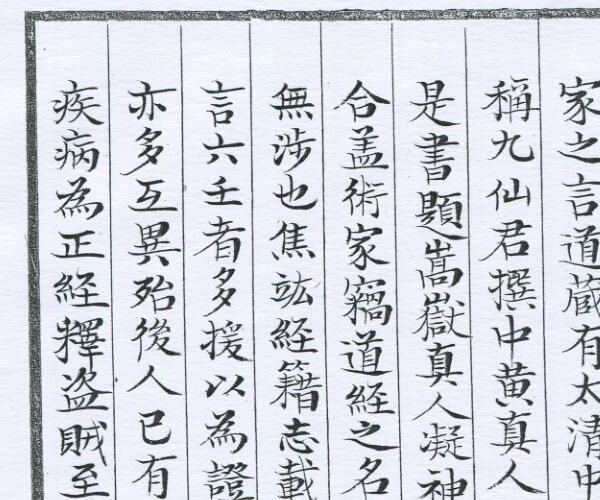 家之言道蔵有太清中
稱九仙君撰中黄真人
是書題嵩嶽真人凝神
合盖術家竊道經之名
無涉也焦竑経籍志載
言六壬者多援以為證
亦多互異殆後人已有
疾病為正経釋盗賊至